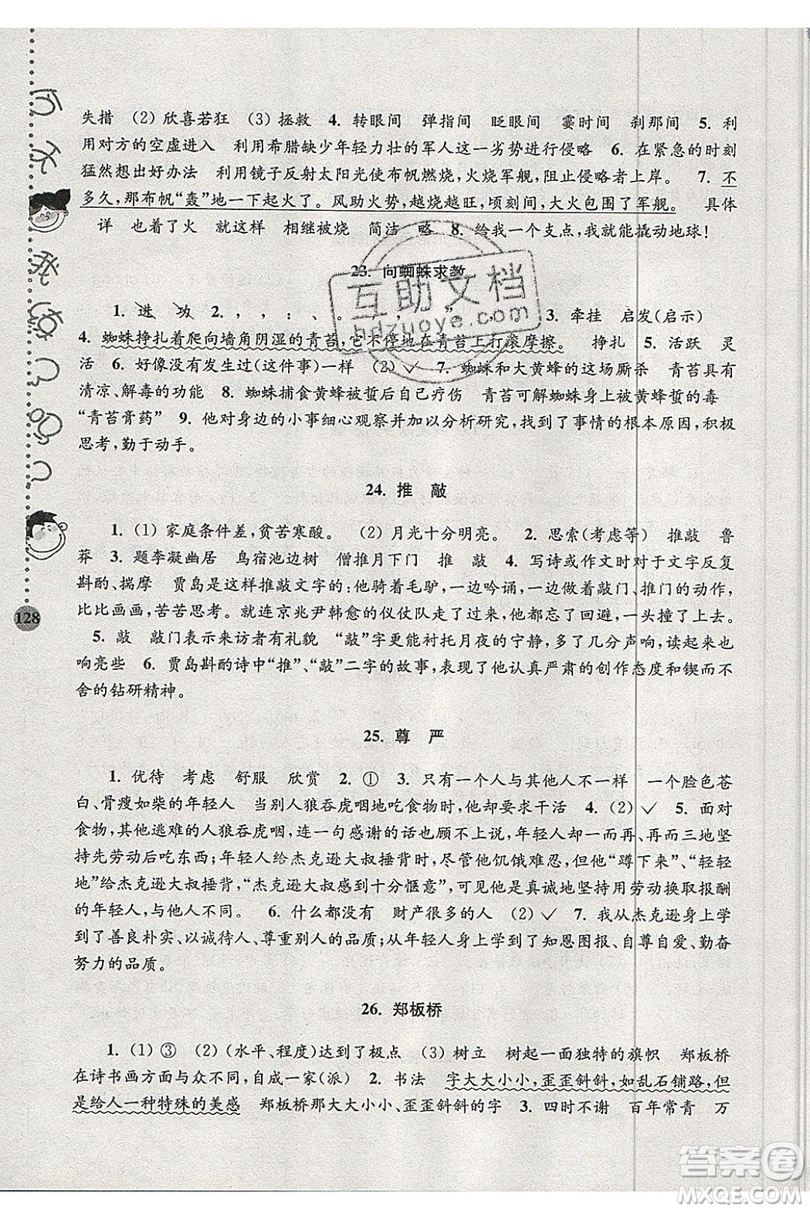 失措 (2) 欣喜若狂 (3) 拯救 4. 转眼间 弹指间 眨眼间 霎时间 刹那间 5. 利
用对方的空虚进入 利用希腊缺少年轻力壮的军人这一劣势进行侵略 6. 在紧急的时刻
猛然想出好办法 利用镜子反射太阳光使布帆燃烧,火烧军舰,阻止侵略者上岸。 7. 不
多久,那布帆“轰”地一下起火了。风助火势,越烧越旺,顷刻间,大火包围了军舰。 具体
详 可是着了火 就这样 相继被烧 简洁 略 8. 给我一个支点,我就能撬动地球!
23. 向蜘蛛求教
互助文档
hdzuoye.com
1. 进 功 2. , , : 、 。 3. 牵挂 启发(启示)
4. 蜘蛛挣扎着爬向墙角阴湿的青苔,它不停地在青苔上打滚摩擦。 挣扎 5. 活跃 灵
活 6. 好像没有发生过(这件事)一样 (2) ✓ 7. 蜘蛛和大黄蜂的这场厮杀 青苔具有
清凉、解毒的功能 8. 蜘蛛捕食黄蜂被蜇后自己疗伤 青苔可解黄蜂蜇的毒
“青苔膏药” 9. 他对身边的小事细心观察并加以分析研究,找到了事情的根本原因,积极
思考,勤于动手。
24. 推 敲
1. (1) 家庭条件差,贫苦寒酸。 (2) 月光十分明亮。 2. 思索(考虑等) 推敲 鲁
莽 3. 题李凝幽居 鸟宿池边树 僧推月下门 推 敲 4. 写诗或作文时对于文字反复
斟酌、揣摩 贾岛推敲文字的情景:他骑着毛驴,一边吟诵,一边做着敲门、推门的动作,
比比画画,苦苦思考。就连京兆尹韩愈的仪仗队走了过来,他都忘了回避,一头撞了上去。
5. 敲 敲门表示来访者有礼貌 “敲”字更能衬托月夜的宁静,多了几分声响,读起来也
响亮些 6. 贾岛斟酌诗中“推”、“敲”二字的故事,表现了他认真严肃的创作态度和锲而不
舍的钻研精神。
25. 尊 严
1. 优待 考虑 舒服 欣赏 2. ① 3. 只有一个人与其他人不一样 一个脸色苍
白、骨瘦如柴的年轻人 当别人狼吞虎咽地吃食物时,他却要求干活 4. (2) ✓ 5. 面对
食物,其他逃难的人狼吞虎咽,连一句感谢的话也顾不上说,年轻人却一而再、再而三地坚
持先劳动后吃东西;年轻人给杰克逊大叔捶背时,尽管他饥饿难忍,但他“蹲下来”、“轻轻
地”给杰克逊大叔捶背,“杰克逊大叔感到十分惬意”,说明他是真诚地想用劳动换取报酬
的年轻人,与众人不同。 6. 什么都没有 财产很多的人 (2) ✓ 7. 我从杰克逊身上学
到了善良朴实、以诚待人、尊重别人的品质;从年轻人身上学到了知恩图报、自尊自爱、勤奋
努力的品质。
26. 郑板桥
1. (1) ③ (2) (水平、程度)达到了极点 (3) 树立 树起一面独特的旗帜 郑板桥
在诗书画方面与众不同,自成一家(派) 2. 书法 字大大小小,歪歪斜斜,如乱石铺路,但
是给人一种特殊的美感 郑板桥那大大小小、歪歪斜斜的字 3. 四时不谢 百年常青 万
128
答案圈
MXQE.COM